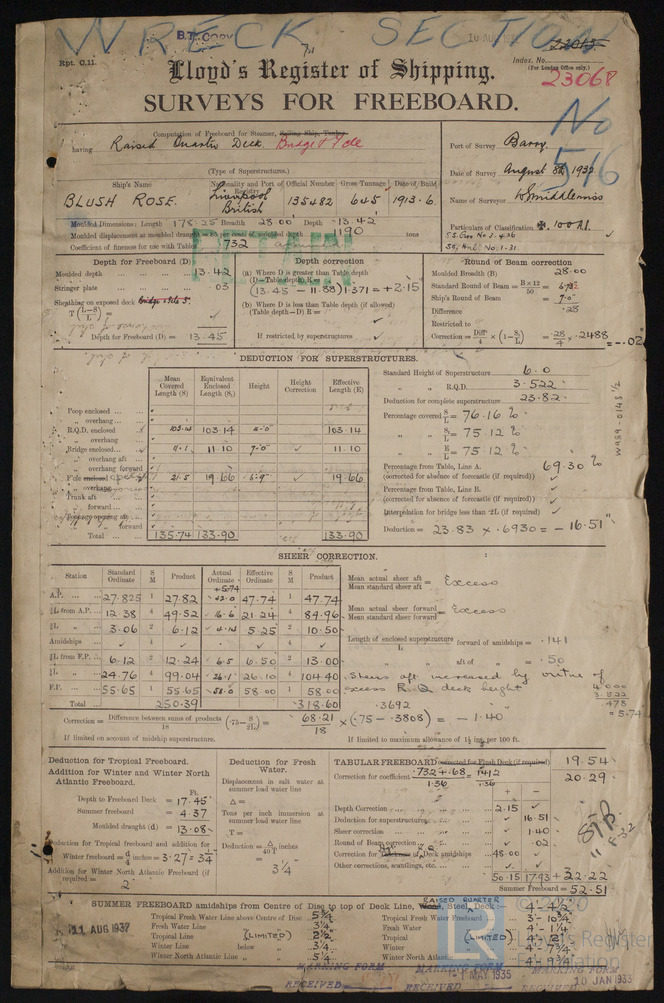 WRECK SECTION
B.T. COPY
Rpt. C.11.
Index. No. 22015
(For London Office only.)
23068
No 516
Lloyd's Register of Shipping.
SURVEYS FOR FREEBOARD.
Computation of Freeboard for Steamer, Sailing Ship, Tanker
having Raised Quarter Deck. Bridge & Fcle
(Type of Superstructures.)
Port of Survey Barry.
Date of Survey August 8th, 1932
Name of Surveyor
Particulars of Classification ✠ 100 A1.
Ship's Name
Nationality and Port of Registry
Official Number
Gross Tonnage
Date of Build
BLUSH ROSE.
Liverpool British
135482
645
1913.6.
Moulded Dimensions: Length 178.25 Breadth 28.00 Depth 13.42
Moulded displacement at moulded draught 1190 tons
Coefficient of fineness for use with Tables .732
Depth for Freeboard (D).
Moulded depth 13.42
Stringer plate .03
Sheathing on exposed deck
T(L-S/L) =
Depth for Freeboard (D) = 13.45
Depth correction
(a) Where D is greater than Table depth
(D - Table depth) R =
(13.45 - 11.88) 1.371 = +2.15
(b) Where D is less than Table depth (if allowed)
(Table depth - D) R =
If restricted by superstructures
Round of Beam correction
Moulded Breadth (B) 28.00
Standard Round of Beam = B×12/50 = 6.72
Ship's Round of Beam = 7.0
Difference .28
Restricted to
Correction = Diff/4 × (1 - S/L) = .28/4 × .2488 = -.02
DEDUCTION FOR SUPERSTRUCTURES.
Mean Covered Length (S)
Equivalent Enclosed Length (S₁)
Height
Height Correction
Effective Length (E)
Poop enclosed
" overhang
R.Q.D. enclosed 103.14 103.14 103.14
" overhang
Bridge enclosed 11.1 11.10 7'-0" 11.10
" overhang aft
" overhang forward
F'cle enclosed open 21.5 19.66 19.66
" overhang
Trunk aft
" forward
Tonnage opening aft
" forward
Total 135.74 133.90 133.90
Standard Height of Superstructure 6.0
" " R.Q.D. 3.522
Deduction for complete superstructure 23.82
Percentage covered S/L = 76.16 %
" S₁/L = 75.12 %
" E/L = 75.12 %
Percentage from Table, Line A. 69.30 %
(corrected for absence of forecastle (if required))
Percentage from Table, Line B.
(corrected for absence of forecastle (if required))
Interpolation for bridge less than .2L (if required)
Deduction = 23.83 × .6930 = -16.51"
W989-0148 1/2
SHEER CORRECTION.
Station
Standard Ordinate
S M
Product
Actual Ordinate
Effective Ordinate
S M
Product
+5.74
A.P. 27.825 1 27.82 42.0 47.74 1 47.74
⅙L from A.P. 12.38 4 49.52 21.24 4 84.96
⅓L 3.06 2 6.12 5.25 2 10.50
Amidships 4 4
⅓L from F.P. 6.12 2 12.24 6.5 6.50 2 13.00
⅙L 24.76 4 99.04 26.1 26.10 4 104.40
F.P. 55.65 1 55.65 58.0 58.00 1 58.00
Total 250.39 318.60
Mean actual sheer aft / Mean standard sheer aft = Excess
Mean actual sheer forward / Mean standard sheer forward = Excess.
Length of enclosed superstructure/L forward of amidships = .141
" " aft of " = .50
Sheers aft increased by virtue of excess R.Q. deck height
4.000
3.522
.478
= 5.74
Correction = Difference between sums of products/18 (.75 - S/2L) = 68.21/18 × (.75 - .3808) = -1.40
.3692
If limited on account of midship superstructure.
If limited to maximum allowance of 1½ ins. per 100 ft.
Deduction for Tropical Freeboard.
Addition for Winter and Winter North Atlantic Freeboard.
Ft.
Depth to Freeboard Deck = 17.45
Summer freeboard = 4.37
Moulded draught (d) = 13.08
Deduction for Tropical freeboard and addition for Winter freeboard = d/4 inches = 3.27 = 3¼
Addition for Winter North Atlantic Freeboard (if required) = 2"
Deduction for Fresh Water.
Displacement in salt water at summer load water line
Δ =
Tons per inch immersion at summer load water line
T =
Deduction = Δ/40T inches
= 3¼
TABULAR FREEBOARD corrected for Flush Deck (if required) 19.54
Correction for coefficient .732+.68/1.36 = 1.412/1.36 20.29
+ -
Depth Correction 2.15
Deduction for superstructures 16.51
Sheer correction 1.40
Round of Beam correction .02
Correction for Thickness of Deck amidships 48.00
Other corrections, scantlings, etc.
50.15 17.93 +32.22
Summer Freeboard = 52.51
SUMMER FREEBOARD amidships from Centre of Disc to top of Deck Line, Wood, Steel, Deck RAISED QUARTER
Tropical Fresh Water Line above Centre of Disc 5¾
Fresh Water Line " " 3¼
Tropical Line (LIMITED) " 2½
Winter Line below " 3¼
Winter North Atlantic Line " " 5¼
Tropical Fresh Water Freeboard 3'-10¾
Fresh Water " 4'-1¼
Tropical (LIMITED) "
Winter "
Winter North Atlantic
11 AUG 1937
MARKING FORM RECEIVED
MARKING FORM RECEIVED MAY 1935
MARKING FORM RECEIVED 10 JAN 1933
© 2020
LR
Lloyd's Register Foundation